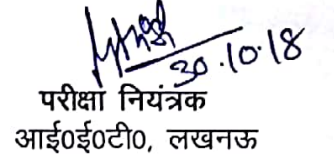 30.10.18
परीक्षा नियंत्रक
आई०ई०टी०, लखनऊ